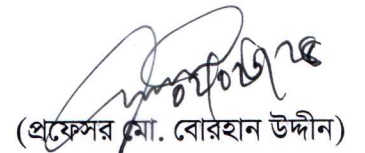 (প্রফেসর মো. বোরহান উদ্দীন)